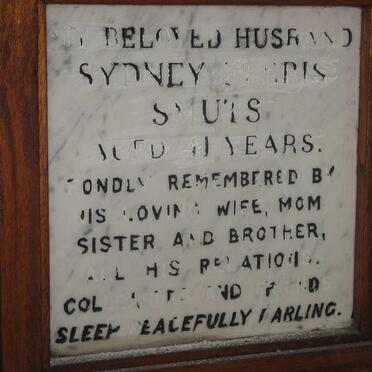 MY BELOVED HUSBAND
SYDNEY
SMUTS
AGED 41 YEARS.
FONDLY REMEMBERED BY
HIS LOVING WIFE, MOM
SISTER AND BROTHER,
ALL HIS RELATIONS.
AND
SLEEP PEACEFULLY DARLING.